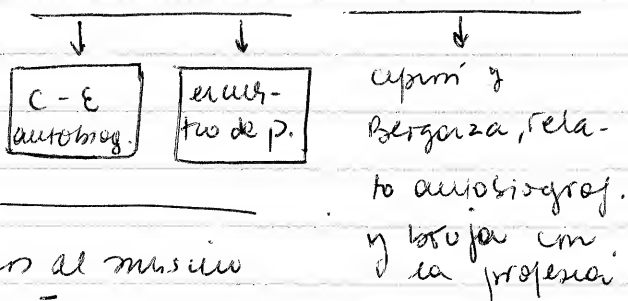 C - E
autobiog.
encuen-
tro de p.
Cipión y
Berganza, rela-
to autobiograf.
y bruja con
la profecía
al músico